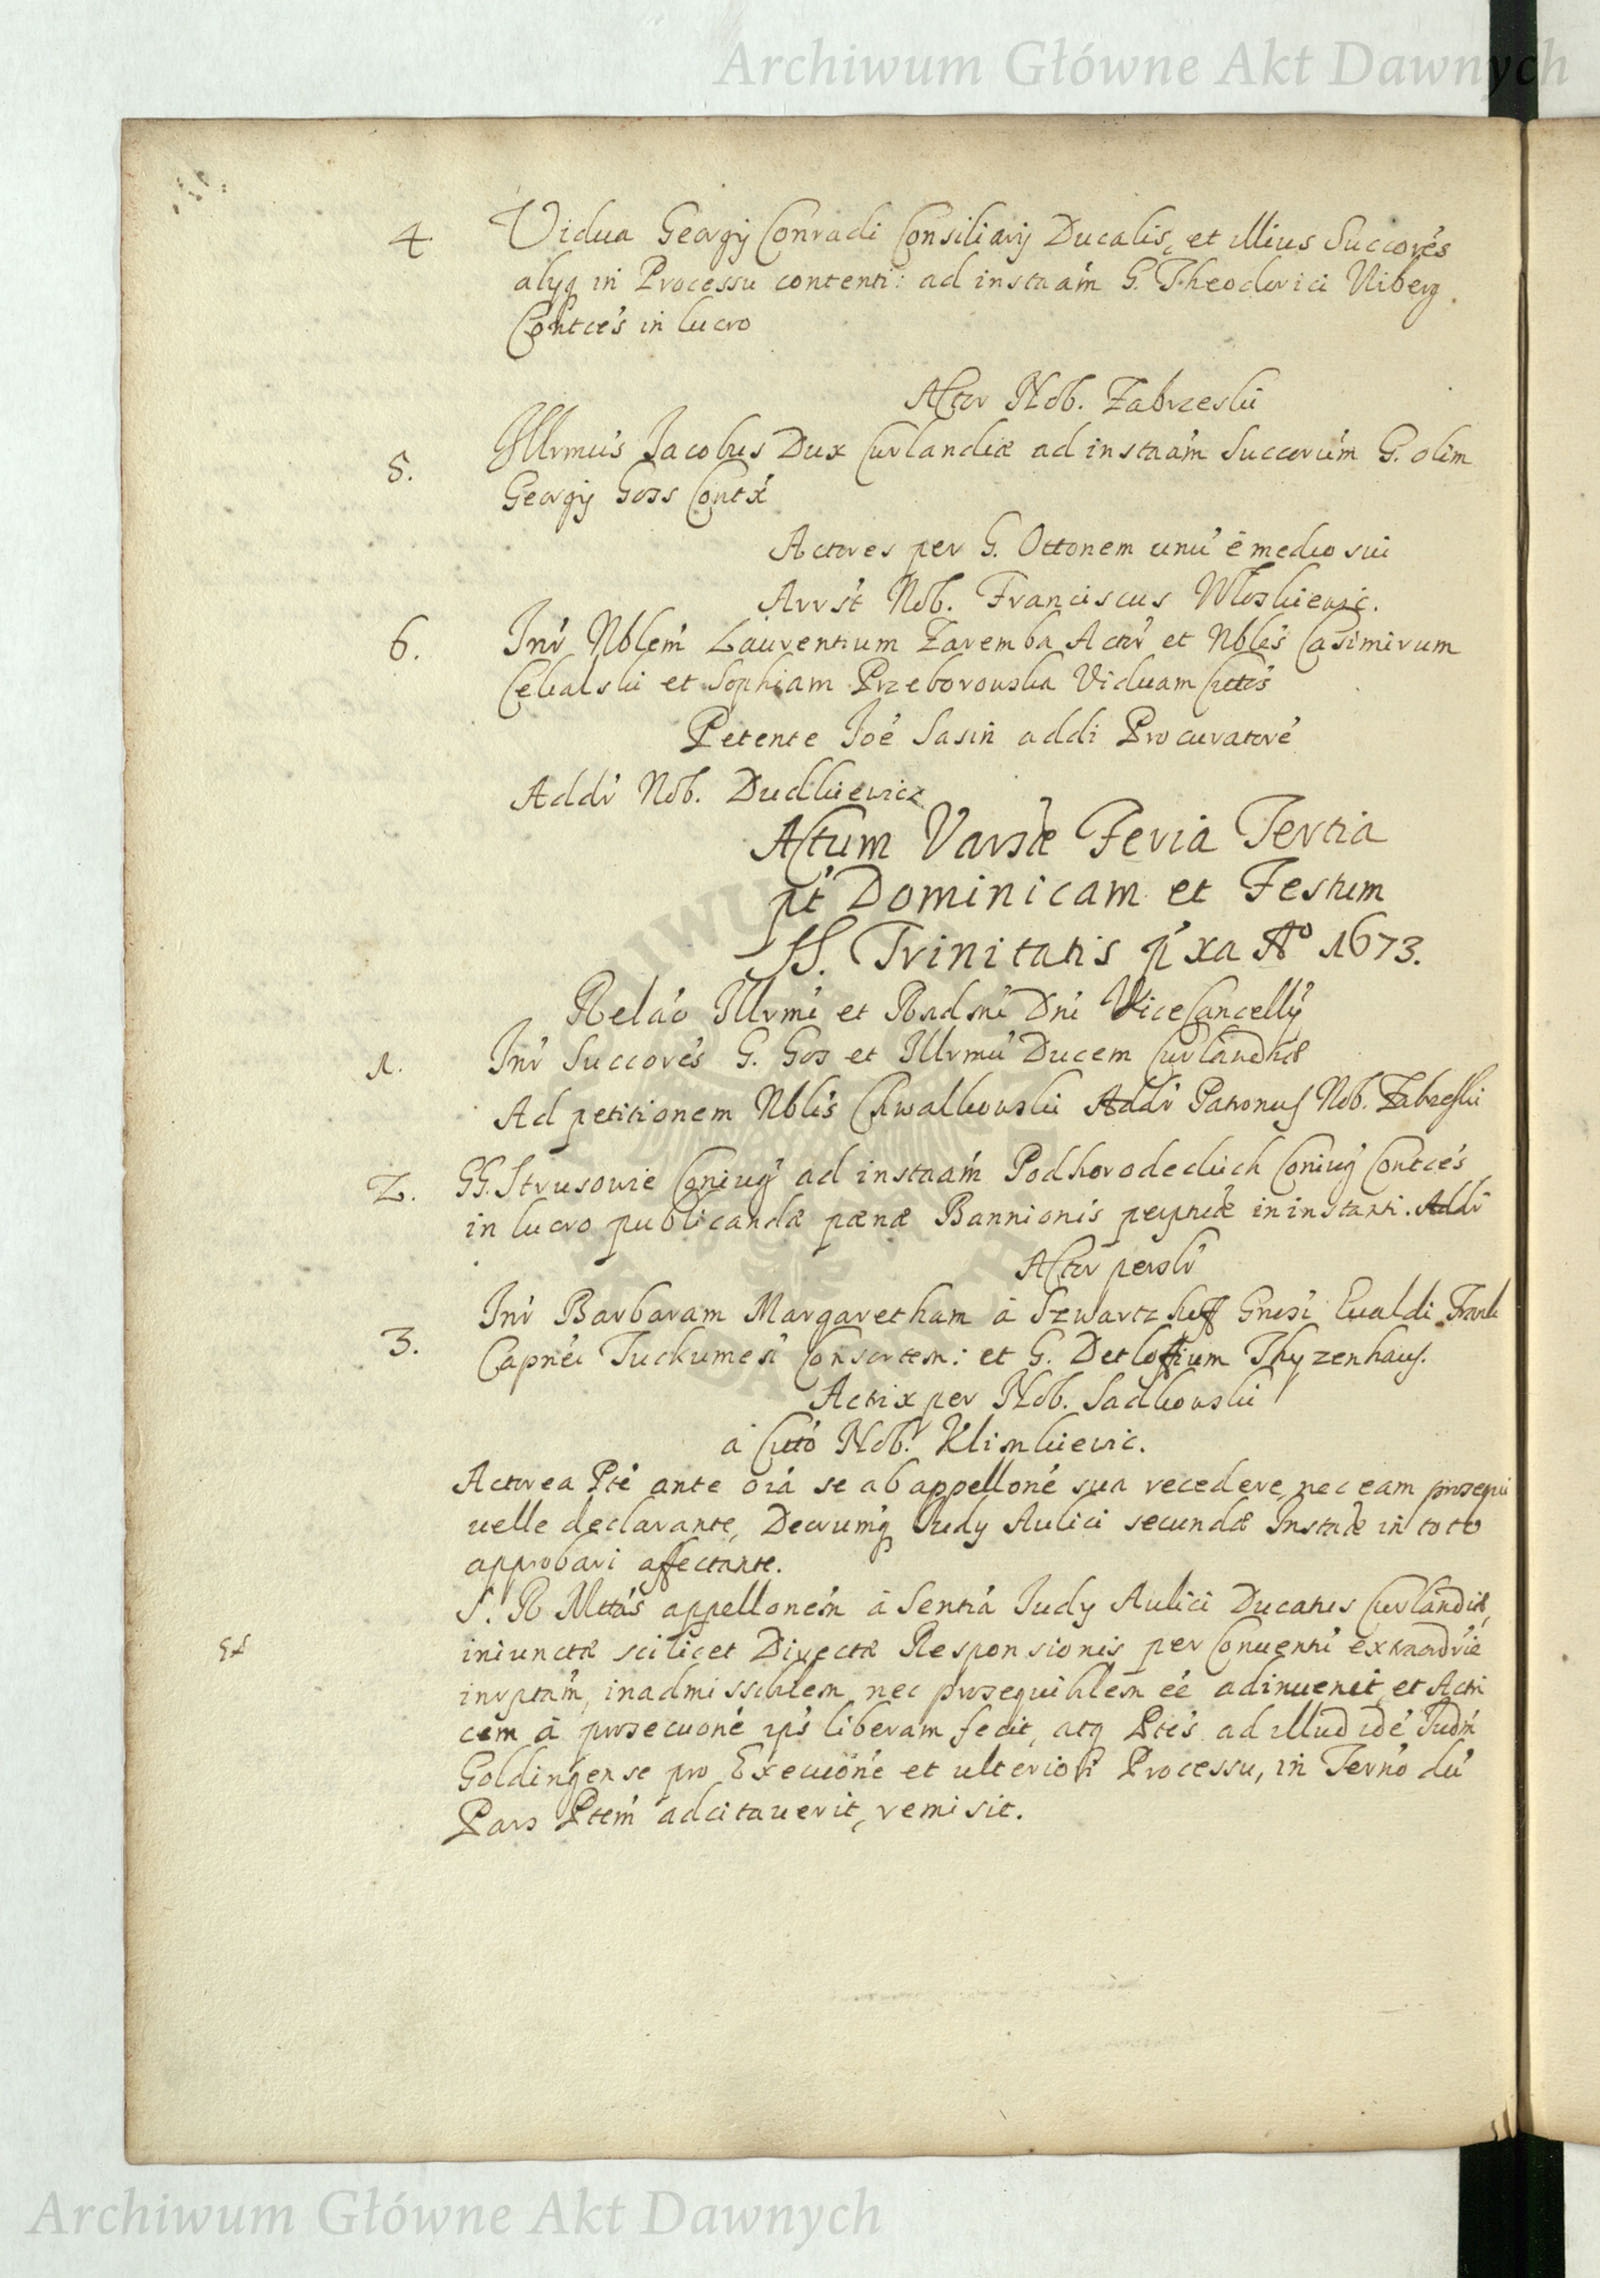 Archiwum Główne Akt Dawnych
4. Vidua Georgij Conradi Consiliarij Ducalis, et illius Succorés
alyq in Processu contenti: ad instaám G. Theodorici Viberg
Contcés in lucro
Actor Nob. Zabrzeski
5. Illrmús Jacobus Dux Curlandiæ ad instaám Succorúm G. olim
Georgij Goss Contx́
Actores per G. Ottonem unú é medio sui
Arrst́ Nob. Franciscus Wloskiewic.
6. Inŕ Nbleḿ Laurentium Zaremba Actŕ et Nblés Casimirum
et Sophiam Przeborowska Viduam Cittós
Petente Joé Sasin addi Procuratoré
Addŕ Nob. Dudkiewicz
Actum Varsæ Feria Tertia
pt́ Dominicam et Festum
SS. Trinitatis ṕxa Aº 1673.
Relaó Illrmí et Rndmí Dní ViceCancellý
1. Inŕ Succorés G. Gos et Illrmú Ducem Curlandiæ
Ad petitionem Nblis Chwalkowski Addŕ Patronus Nob. Zabrzeski
2. GG. Strusowie Coniug ad instaám Podhorodeckich Coniug Contcés
in lucro publicandæ pænæ Bannionis perptuæ in instanti. Addŕ
Actor persĺr
3. Inŕ Barbaram Margaretham à Szwartzhoff Gnesi Evaldi Frank
Capnéi Tuckumesi Consortem: et G. Detloffium Thyzenhaus.
Actrix per Nob. Sadkowski
à Citto Nob. Klimkiewic.
Actorea Pté ante oia se ab appelloné sua recedere, nec eam prosequi
uelle declarante, Decrumq Judý Aulici secundæ Instaæ in toto
approbari affectante.
S. R. Mttás appelloném à Sentiá Judý Aulici Ducatus Curlandiæ,
Ex iniunctæ scilicet Directæ Responsionis per Conuentú extraordrié
inrptam, inadmissiblem nec prosequiblem éé adinuenit, et Actri
cem à prosecuoné ips liberam fecit, atq Ptés ad illud idé Judm
Goldingense pro Execuoné et ulteriori Processu, in Termo dú
Pars Ptem adcitauerit, remisit.
Archiwum Główne Akt Dawnych